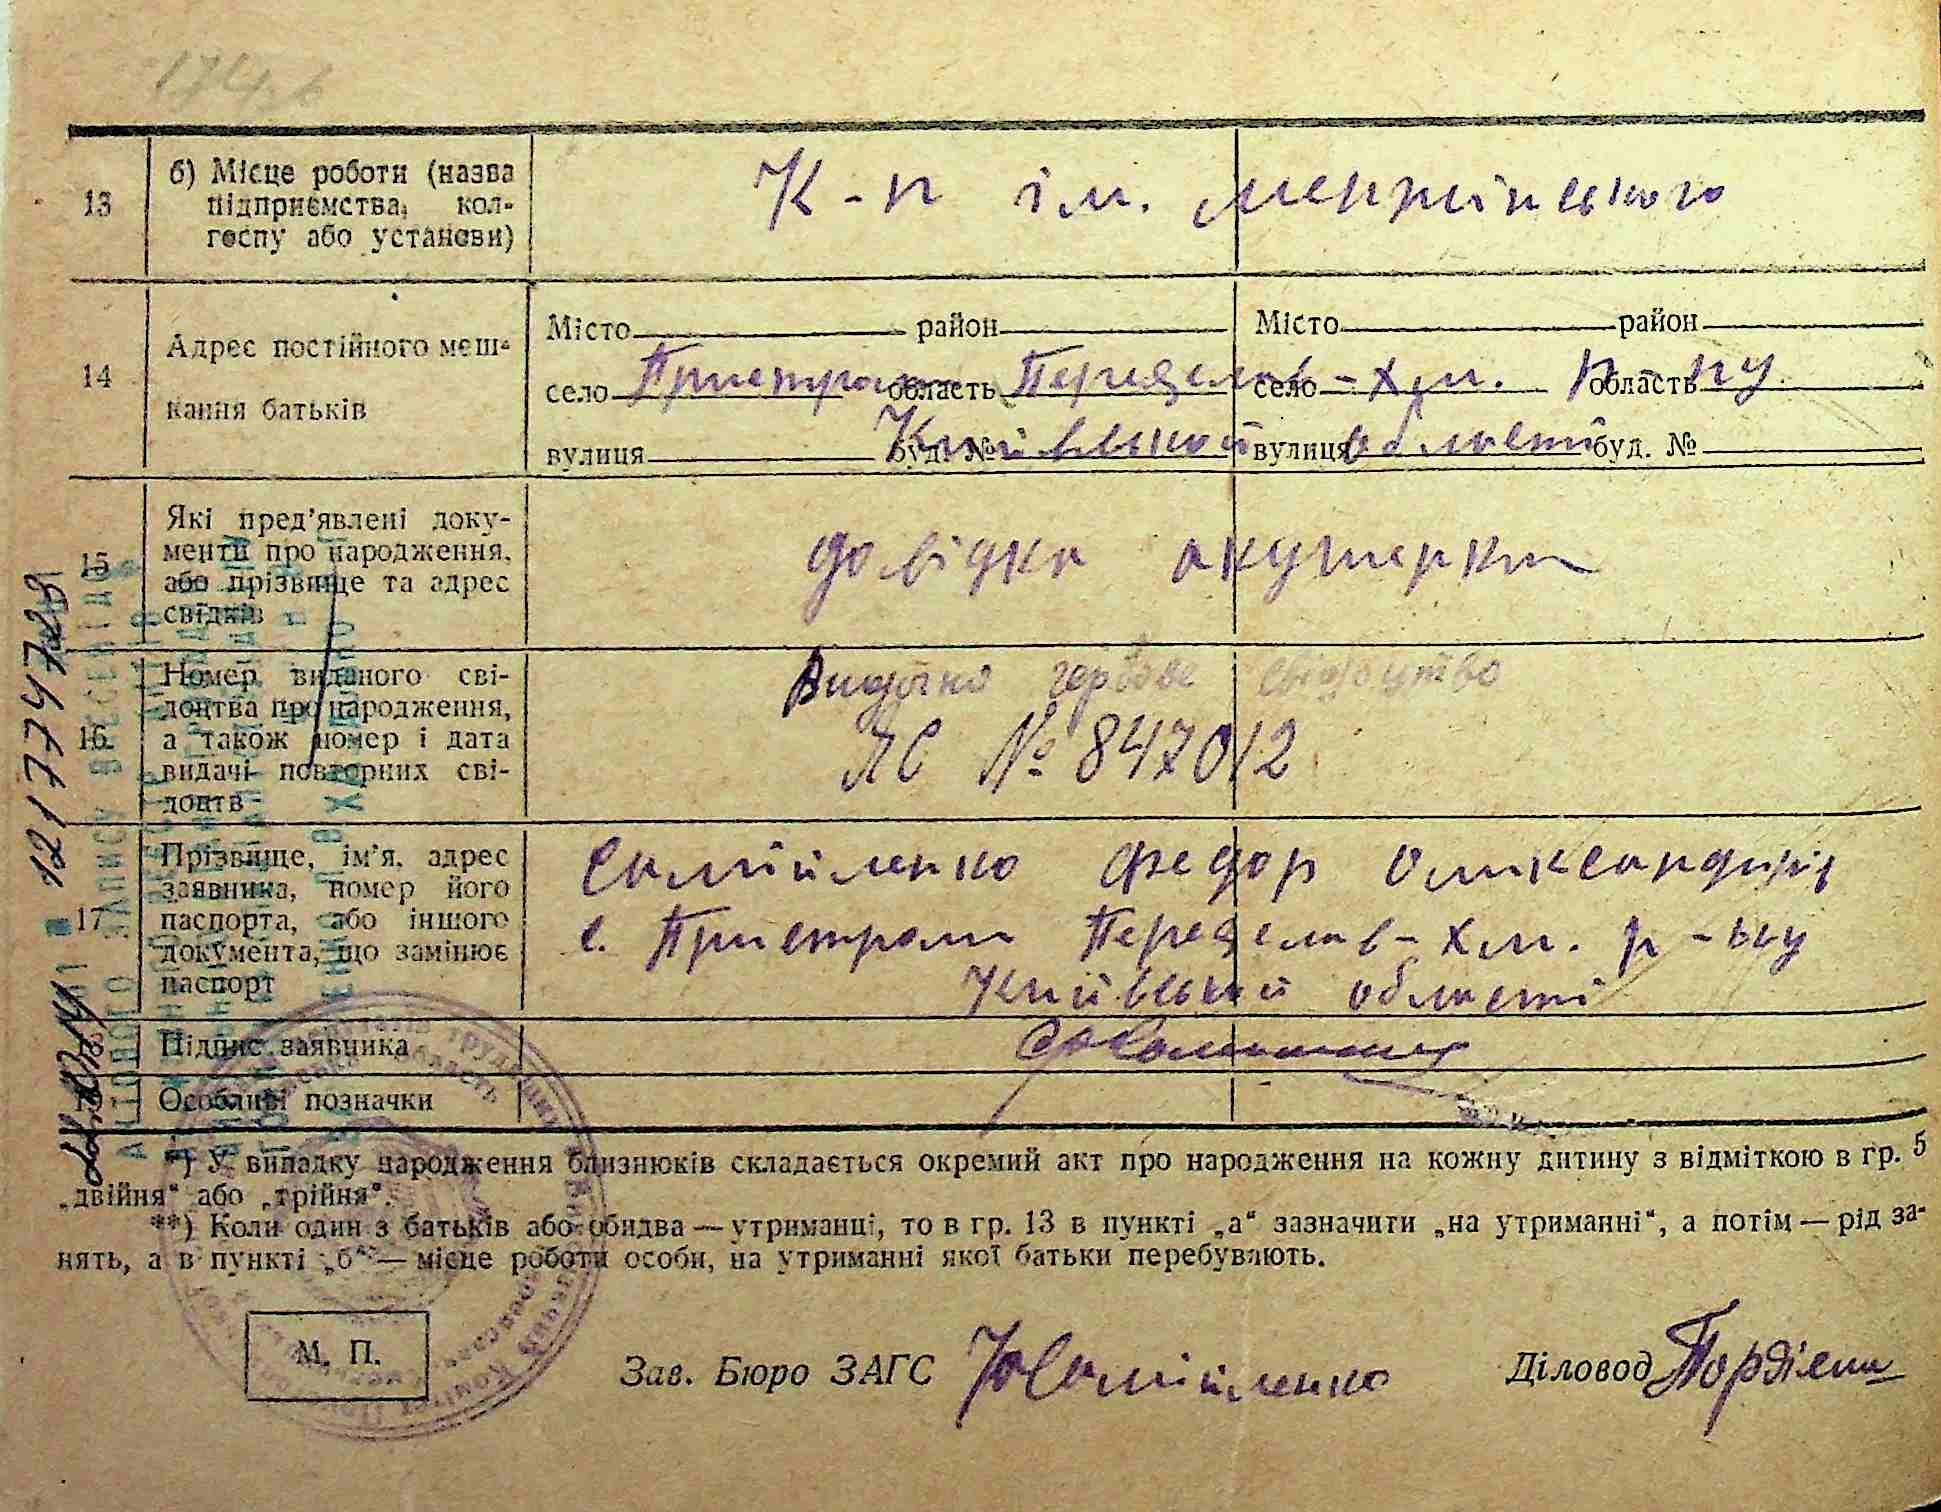 13
б) Місце роботи (назва
підприємства, кол-
госпу або установи)
К-п ім. Менжінського
14
Адрес постійного меш-
кання батьків
Місто район Місто район
село Пристроми область Переяслав-Хм. село р-ну область
вулиця буд. № Київської області вулиця буд. №
15
Які пред'явлені доку-
менти про народження,
або прізвище та адрес
свідків
довідка акушерки
16.
Номер виданого сві-
доцтва про народження,
а також номер і дата
видачі повторних сві-
доцтв
Видано гербове свідоцтво
ЯС № 847012
17
Прізвище, ім'я, адрес
заявника, номер його
паспорта, або іншого
документа, що замінює
паспорт
Самійленко Федор
с. Пристроми Переяслав-Хм. р-ну
Київській області
Підпис заявника
Особливі позначки
*) У випадку народження близнюків складається окремий акт про народження на кожну дитину з відміткою в гр. 5
„двійня" або „трійня".
**) Коли один з батьків або обидва — утриманці, то в гр. 13 в пункті „а" зазначити „на утриманні", а потім — рід за-
нять, а в пункті „б" — місце роботи особи, на утриманні якої батьки перебувають.
М. П.
Зав. Бюро ЗАГС Самійленко
Діловод